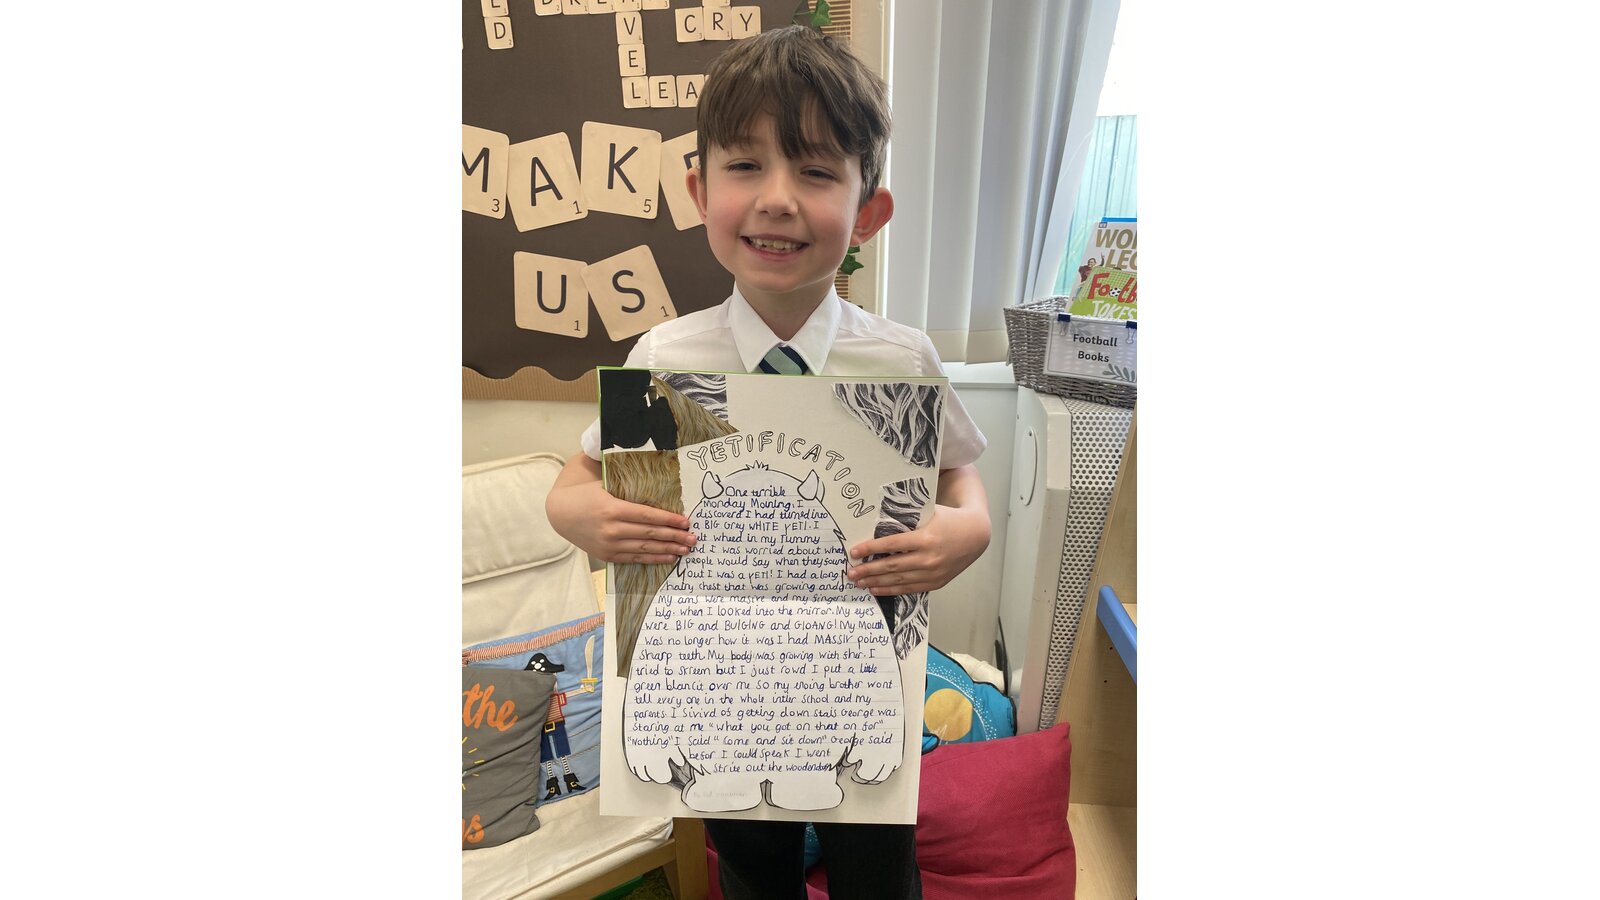 D
CRY
V
E
LEA
MAKE
3 1 5
US
1 1
WOR
LEG
Footb
JOKES
Football
Books
the
YETIFICATION
One terrible
Monday Moining, I
discoverd I had turned into
a BIG Grey WHITE YETI. I
in my Tummy
and I was worried about what
people would say when they found
out I was a YETI! I had a long
hairy chest that was growing and
My arms were masive and my fingers were
big. when I looked into the mirror. My eyes
were BIG and BUlGING and GlOANG! My Mouth
was no longer how it was I had MASSIV pointy
sharp teeth. My body was growing with sher. I
tried to skreem but I just rowd I put a little
green blancit over me so my enoing brother wont
tell every one in the whole inter School and my
parents. I Sivivd of getting down stais George was
Staring at me "what you got on that on for"
"Nothing" I Said "Come and sit down" George said
befor I could speak I went
Strite out the woodendoor